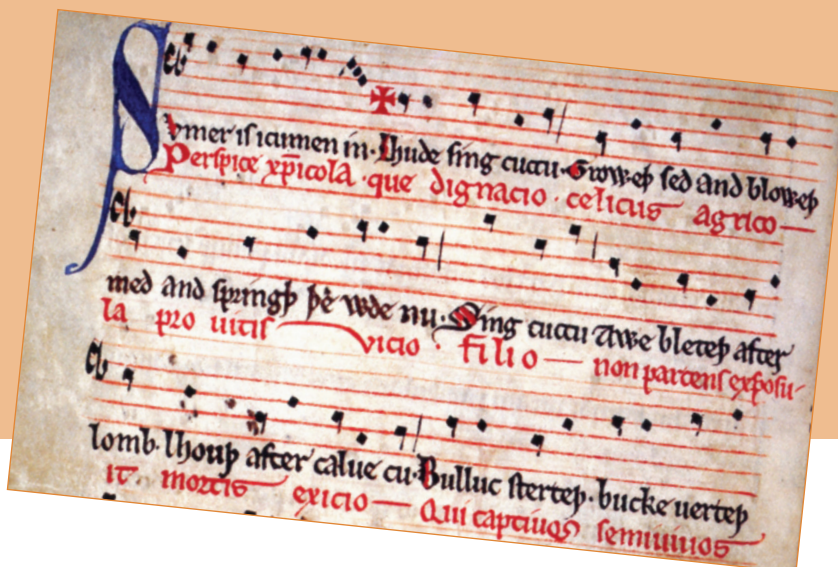 Svmer is icumen in· Lhude sing cuccu· Groweþ sed and bloweþ
Perspice xp̄icola· que dignacio· celicus agrico—
med and springþ þe wde nu· Sing cuccu Awe bleteþ after
la pro uitis vicio· filio— non parcens exposu-
lomb· lhouþ after calue cu· Bulluc sterteþ· bucke uerteþ
it mortis exicio— Qui captiuos semiuiuos